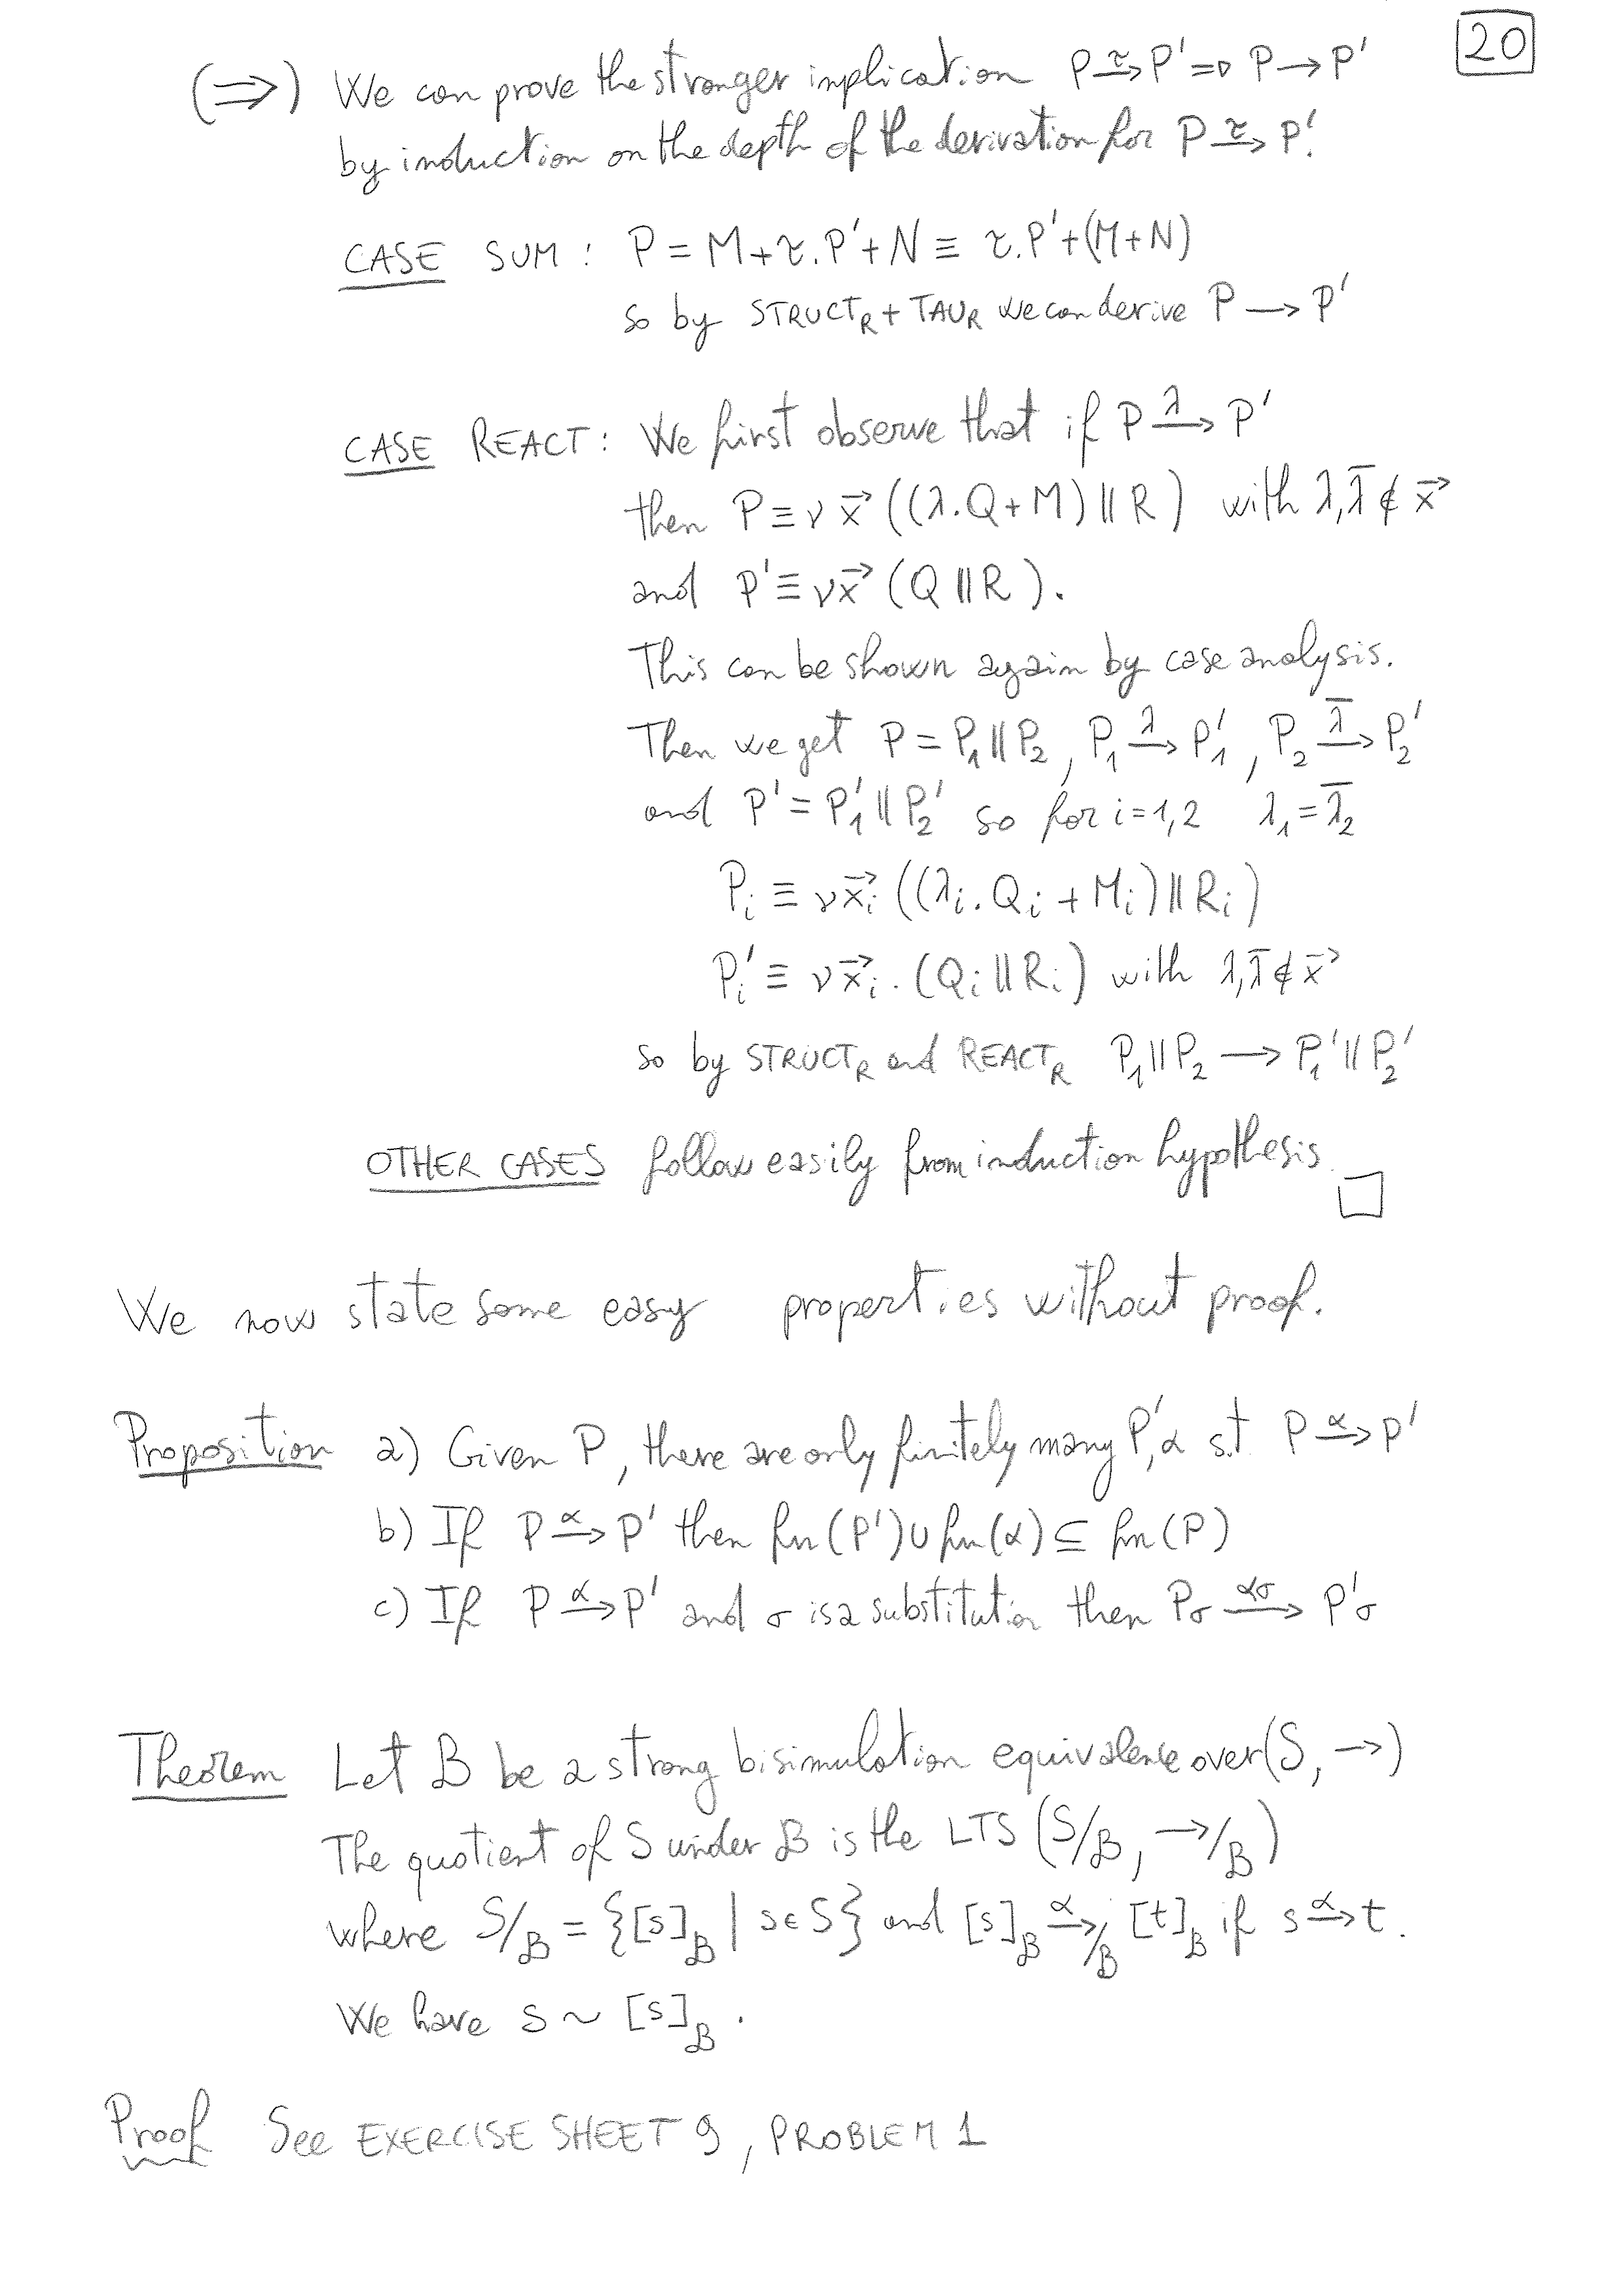 20
(⇒) We can prove the stronger implication P –τ→ P' ⇒ P → P'
by induction on the depth of the derivation for P –τ→ P'.
CASE SUM : P = M + τ.P' + N ≡ τ.P' + (M+N)
so by STRUCT_R + TAU_R we can derive P → P'
CASE REACT : We first observe that if P –λ→ P'
then P ≡ ν x⃗ ((λ.Q + M) || R) with λ, λ̄ ∉ x⃗
and P' ≡ ν x⃗ (Q || R).
This can be shown again by case analysis.
Then we get P = P₁ || P₂, P₁ –λ→ P₁', P₂ –λ̄→ P₂'
and P' = P₁' || P₂' so for i = 1,2 λ₁ = λ̄₂
Pᵢ ≡ ν x⃗ᵢ ((λᵢ.Qᵢ + Mᵢ) || Rᵢ)
Pᵢ' ≡ ν x⃗ᵢ. (Qᵢ || Rᵢ) with λ, λ̄ ∉ x⃗
so by STRUCT_R and REACT_R P₁ || P₂ → P₁' || P₂'
OTHER CASES follow easily from induction hypothesis. □
We now state some easy properties without proof.
Proposition a) Given P, there are only finitely many P', α s.t P –α→ P'
b) If P –α→ P' then fn(P') ∪ fn(α) ⊆ fn(P)
c) If P –α→ P' and σ is a substitution then Pσ –ασ→ P'σ
Theorem Let B be a strong bisimulation equivalence over (S, →)
The quotient of S under B is the LTS (S/B, →/B)
where S/B = {[s]_B | s ∈ S} and [s]_B –α→/B [t]_B if s –α→ t.
We have s ~ [s]_B.
Proof See EXERCISE SHEET 9, PROBLEM 1